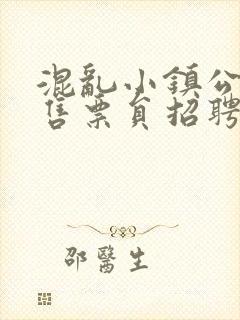 混亂小鎮公
售票員招聘
邵醫生